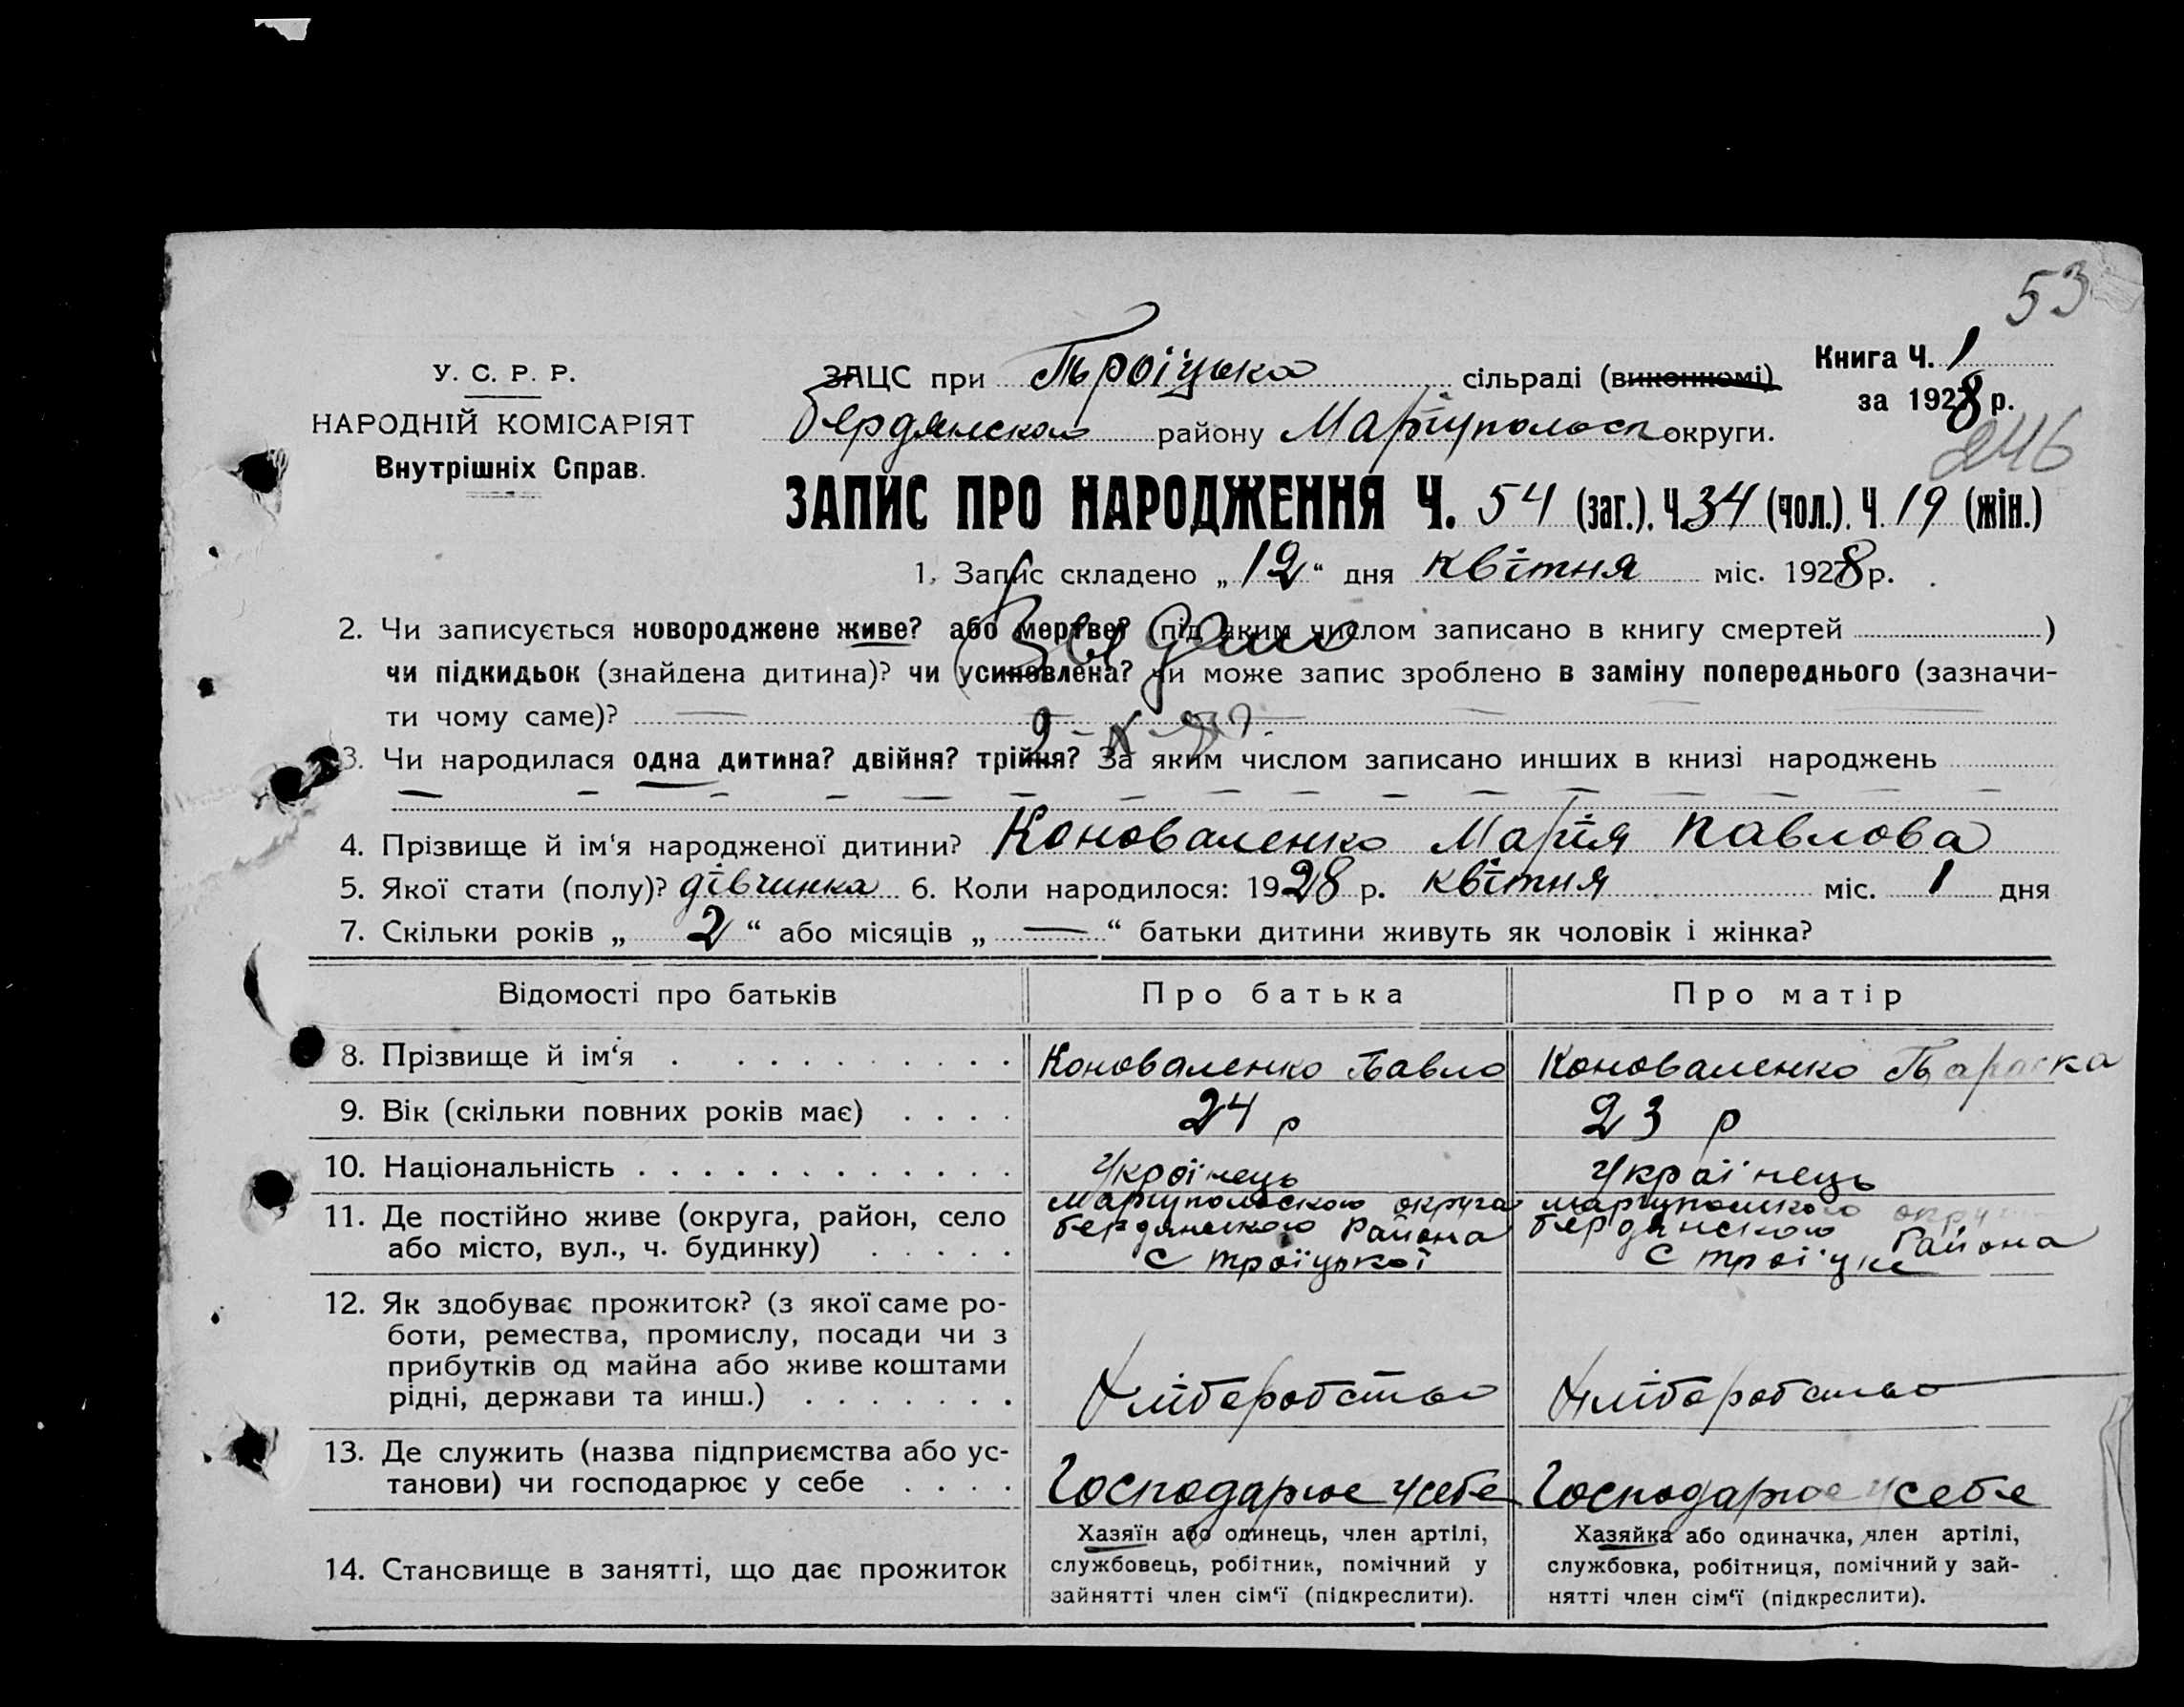 53
У. С. Р. Р.
НАРОДНІЙ КОМІСАРІЯТ
Внутрішніх Справ.
ЗАЦС при Троїцько сільраді (виконкомі)
Бердянсько району Маріупольськ округи.
Книга Ч. 1
за 1928 р.
246
ЗАПИС ПРО НАРОДЖЕННЯ Ч. 54 (заг.). Ч. 34 (чол.). Ч. 19 (жін.)
1. Запис складено „12“ дня квітня міс. 1928 р.
2. Чи записується новороджене живе? або мертве? (під яким числом записано в книгу смертей )
чи підкидьок (знайдена дитина)? чи усиновлена? чи може запис зроблено в заміну попереднього (зазначи-
ти чому саме)?
3. Чи народилася одна дитина? двійня? трійня? За яким числом записано инших в книзі народжень
4. Прізвище й ім'я народженої дитини? Коноваленко Марія Павлова
5. Якої стати (полу)? дівчинка 6. Коли народилося: 1928 р. квітня міс. 1 дня
7. Скільки років „ 2 “ або місяців „ — “ батьки дитини живуть як чоловік і жінка?
Відомості про батьків Про батька Про матір
8. Прізвище й ім‘я Коноваленко Павло Коноваленко Параска
9. Вік (скільки повних років має) 24 р 23 р
10. Національність Українець Українець
11. Де постійно живе (округа, район, село
або місто, вул., ч. будинку)
Маріупольского округа
бердянського Района
С троїцької
маріупольского округ
бердянского Района
С троїцке
12. Як здобуває прожиток? (з якої саме ро-
боти, ремества, промислу, посади чи з
прибутків од майна або живе коштами
рідні, держави та инш.)
Хліборобство Хліборобство
13. Де служить (назва підприємства або ус-
танови) чи господарює у себе
Господарює усебе Господарює усебе
14. Становище в занятті, що дає прожиток
Хазяїн або одинець, член артілі,
службовець, робітник, помічний у
зайнятті член сім‘ї (підкреслити).
Хазяйка або одиначка, член артілі,
службовка, робітниця, помічний у зай-
нятті член сім‘ї (підкреслити).